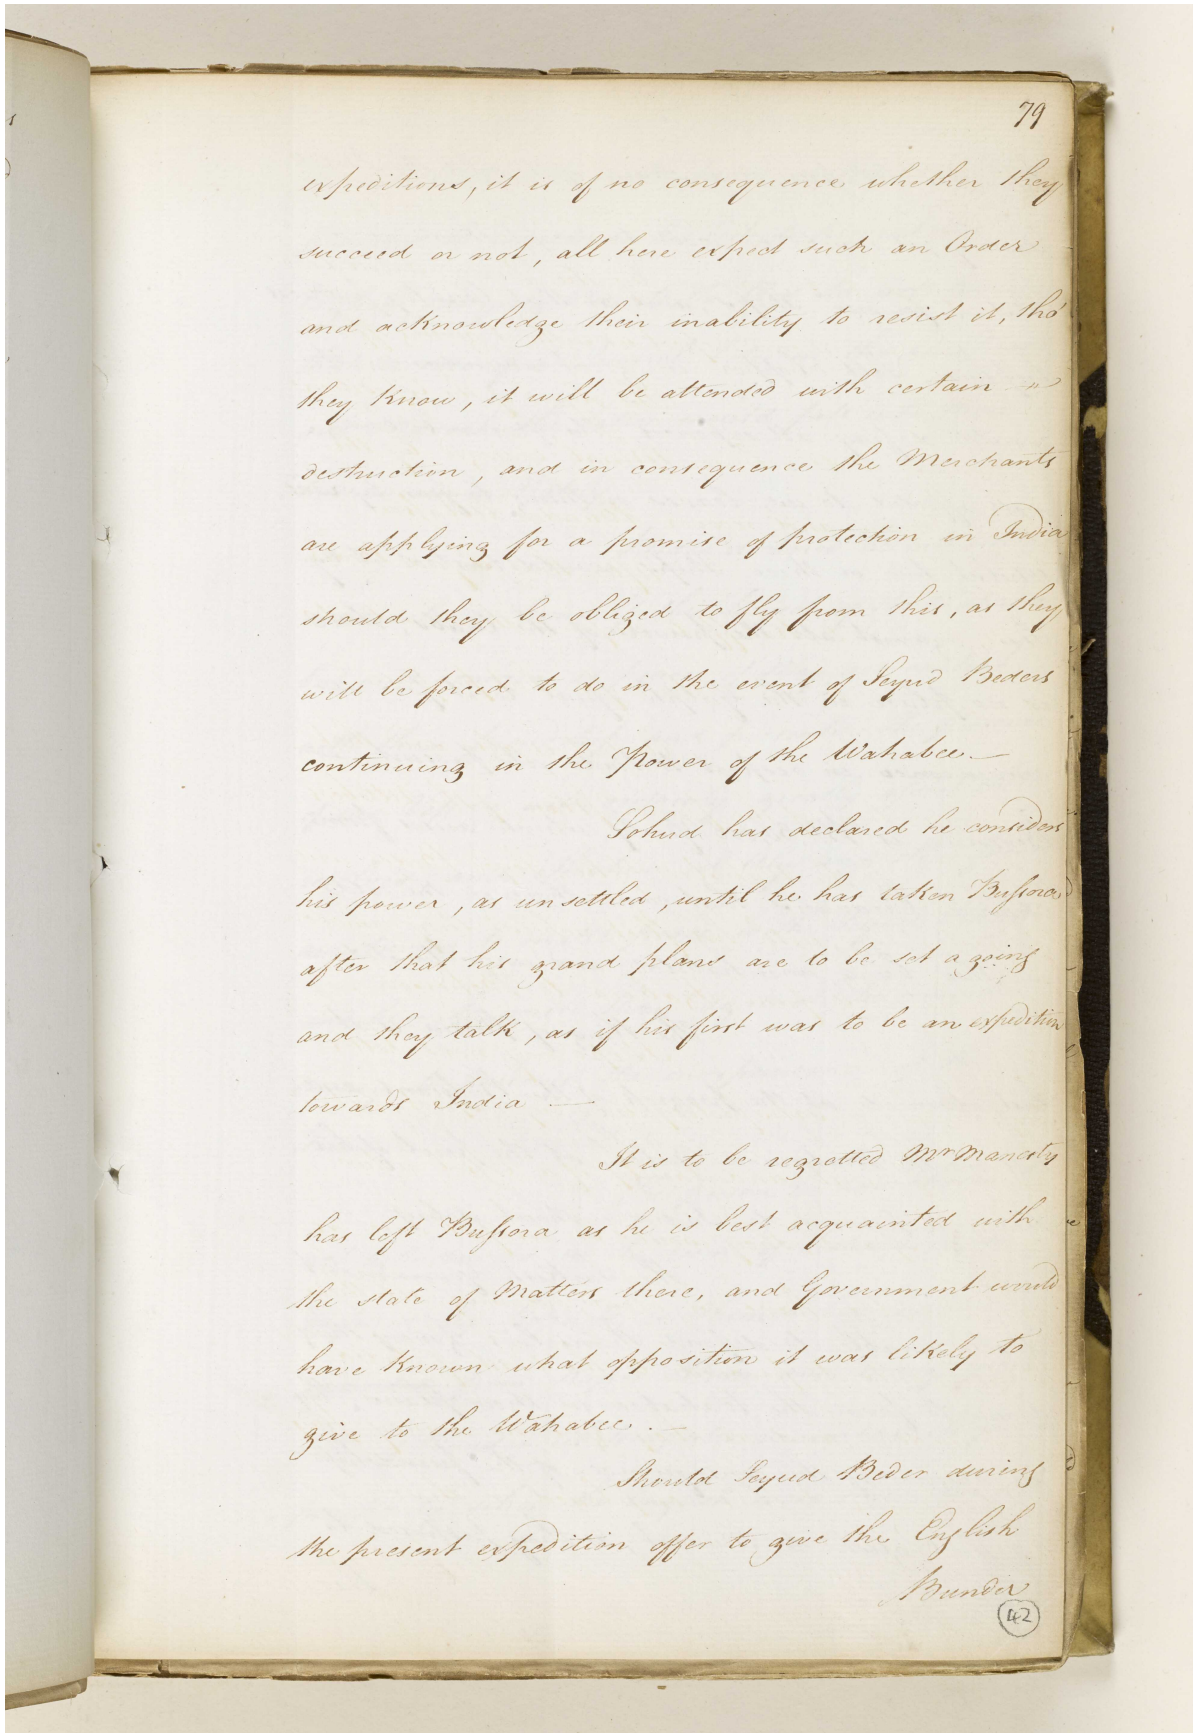 79
expeditions, it is of no consequence whether they
succeed or not, all here expect such an Order
and acknowledge their inability to resist it, tho'
they know, it will be attended with certain
destruction, and in consequence the Merchants
are applying for a promise of protection in India
should they be obliged to fly from this, as they
will be forced to do in the event of Seyud Beders
continuing in the Power of the Wahabee. —
Sohud has declared he considers
his power, as unsettled, until he has taken Bussora
after that his grand plans are to be set a going
and they talk, as if his first was to be an expedition
towards India —
It is to be regretted Mr Manesty
has left Bussora as he is best acquainted with
the state of Matters there, and Government would
have known what opposition it was likely to
give to the Wahabee. —
Should Seyud Beder during
the present expedition offer to give the English
Bunder
42